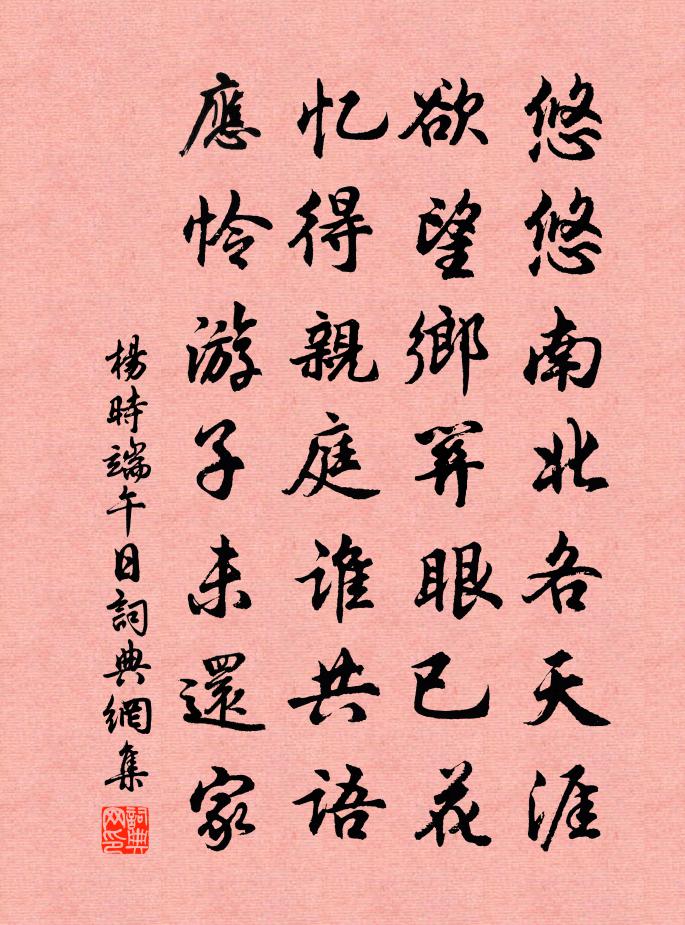 悠悠南北各天涯
欲望鄉関眼已花
忆得親庭誰共語
應怜游子未還家
楊時端午日詞典網集
詞典网印